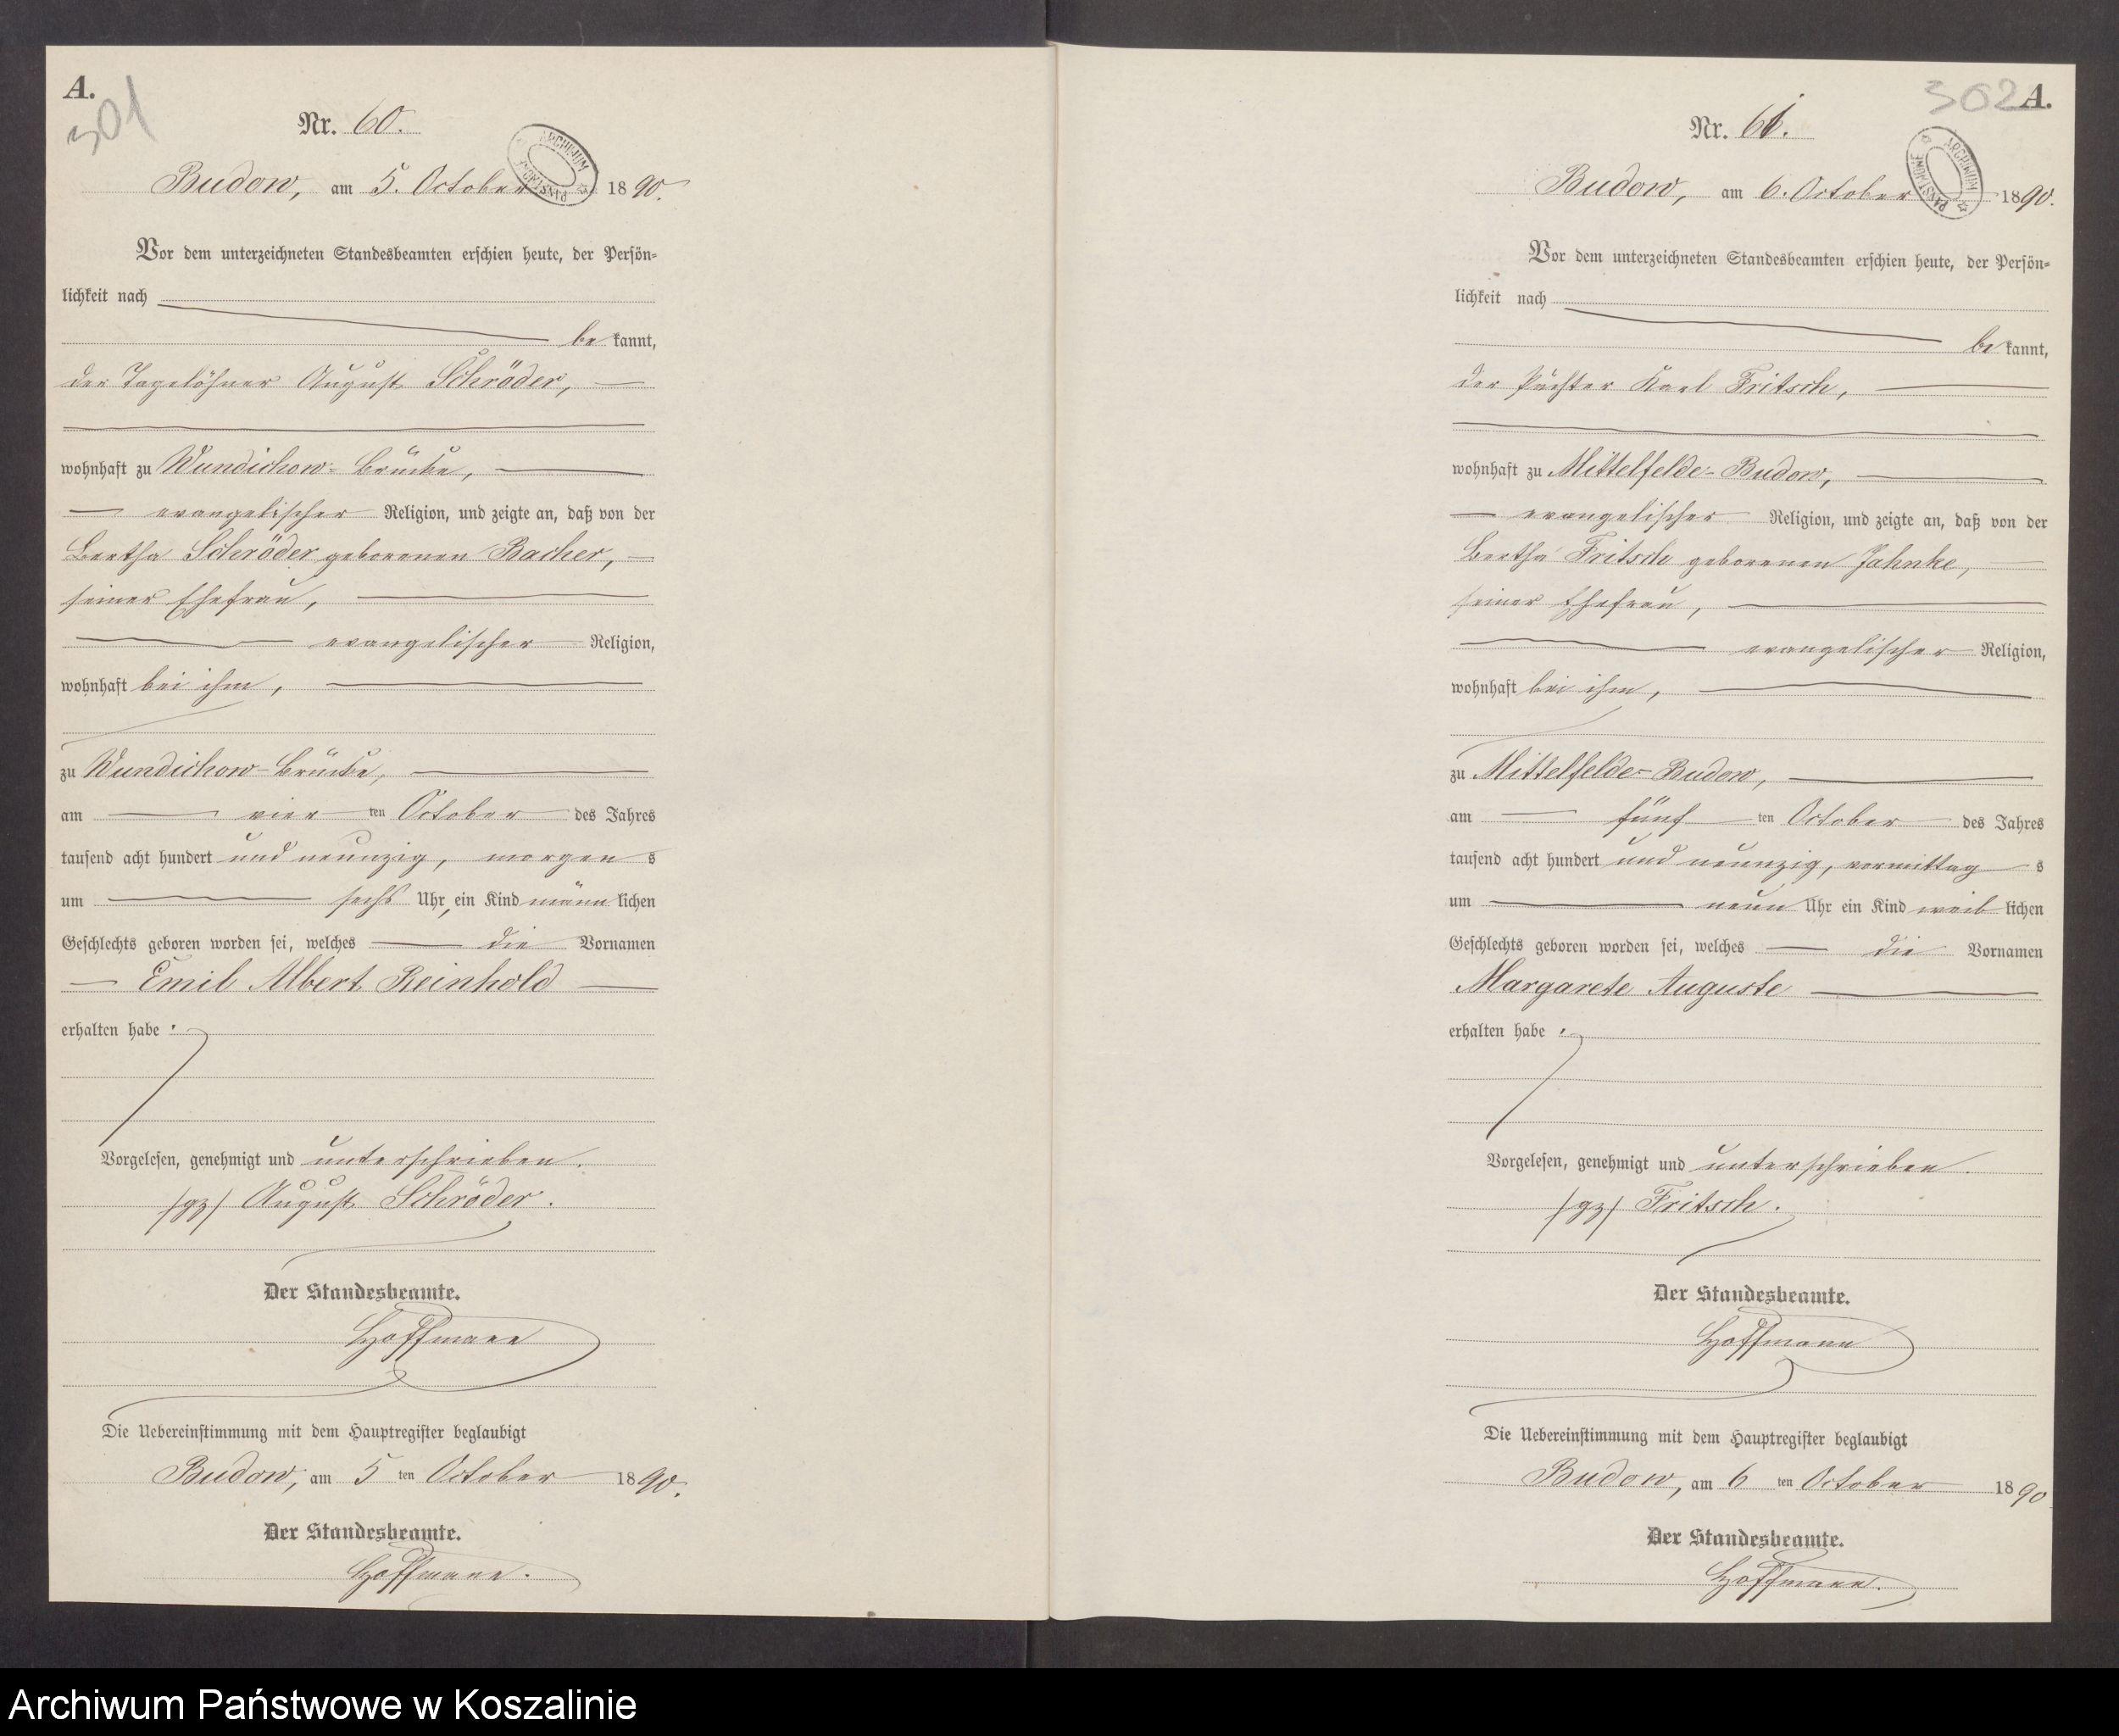 A.
301
Nr. 60.
ARCHIWUM PAŃSTWOWE
Budow, am 5. October 1890.
Vor dem unterzeichneten Standesbeamten erschien heute, der Persön-
lichkeit nach
be kannt,
der Tagelöhner August Schröder,
wohnhaft zu Wundichow-Brücke,
evangelischer Religion, und zeigte an, daß von der
Bertha Schröder geborenen Bacher,
seiner Ehefrau,
evangelischer Religion,
wohnhaft bei ihm,
zu Wundichow-Brücke,
am vier ten October des Jahres
tausend acht hundert und neunzig, morgen s
um sechs Uhr, ein Kind männ lichen
Geschlechts geboren worden sei, welches die Vornamen
Emil Albert Reinhold
erhalten habe.
Vorgelesen, genehmigt und unterschrieben.
/gz/ August Schröder.
Der Standesbeamte.
Hoffmann
Die Uebereinstimmung mit dem Hauptregister beglaubigt
Budow, am 5 ten October 1890.
Der Standesbeamte.
Hoffmann.
302 A.
Nr. 61.
ARCHIWUM PAŃSTWOWE
Budow, am 6. October 1890.
Vor dem unterzeichneten Standesbeamten erschien heute, der Persön-
lichkeit nach
be kannt,
der Pächter Karl Fritsch,
wohnhaft zu Mittelfelde-Budow,
evangelischer Religion, und zeigte an, daß von der
Bertha Fritsch geborenen Jahnke,
seiner Ehefrau,
evangelischer Religion,
wohnhaft bei ihm,
zu Mittelfelde-Budow,
am fünf ten October des Jahres
tausend acht hundert und neunzig, vormittag s
um neun Uhr ein Kind weib lichen
Geschlechts geboren worden sei, welches die Vornamen
Margarete Auguste
erhalten habe.
Vorgelesen, genehmigt und unterschrieben.
/gz/ Fritsch.
Der Standesbeamte.
Hoffmann
Die Uebereinstimmung mit dem Hauptregister beglaubigt
Budow, am 6 ten October 1890
Der Standesbeamte.
Hoffmann.
Archiwum Państwowe w Koszalinie